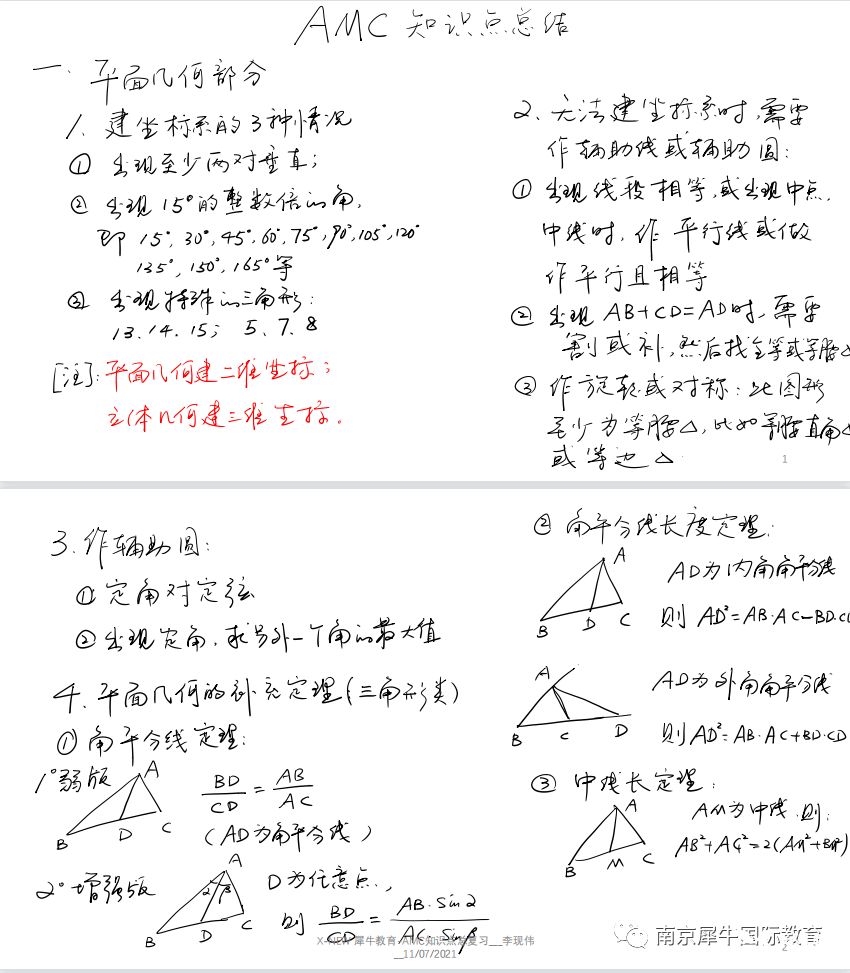 AMC 知识点总结
一. 平面几何部分
1. 建坐标系的3种情况
① 出现至少两对垂直;
② 出现15°的整数倍的角,
即 15°, 30°, 45°, 60°, 75°, 90°, 105°, 120°
135°, 150°, 165°等
③ 出现特殊的三角形:
13. 14. 15; 5. 7. 8
[注]: 平面几何建二维坐标;
立体几何建三维坐标.
2. 无法建坐标系时, 需要
作辅助线或辅助圆:
① 出现线段相等, 或出现中点,
中线时, 作 平行线或做
作平行且相等
② 出现 AB+CD=AD时, 需要
割或补, 然后找全等或等腰△
③ 作旋转或对称: 此图形
至少为等腰△, 比如等腰直角△
或等边△
1
3. 作辅助圆:
① 定角对定弦
② 出现定角, 求另外一个角的最大值
4. 平面几何的补充定理(三角形类)
① 角平分线定理:
1° 弱版
A
B
D
C
BD/CD = AB/AC
(AD为角平分线)
2° 增强版
A
α β
B
D
C
D为任意点,
则 BD/CD = AB·sinα/AC·sinβ
② 角平分线长度定理:
A
B
D
C
AD为内角角平分线
则 AD²=AB·AC-BD·CD
A
B
C
D
AD为外角角平分线
则AD²=AB·AC+BD·CD
③ 中线长定理:
A
B
M
C
AM为中线, 则:
AB²+AC²=2(AM²+BM²)
X-NEW 犀牛教育-AMC知识点总复习__李现伟
__11/07/2021
南京犀牛国际教育
2